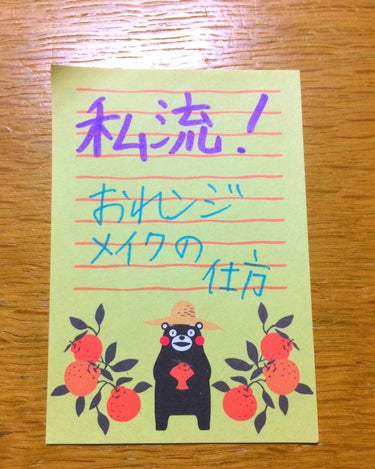 私流！
おれンジ
メイクの
仕方